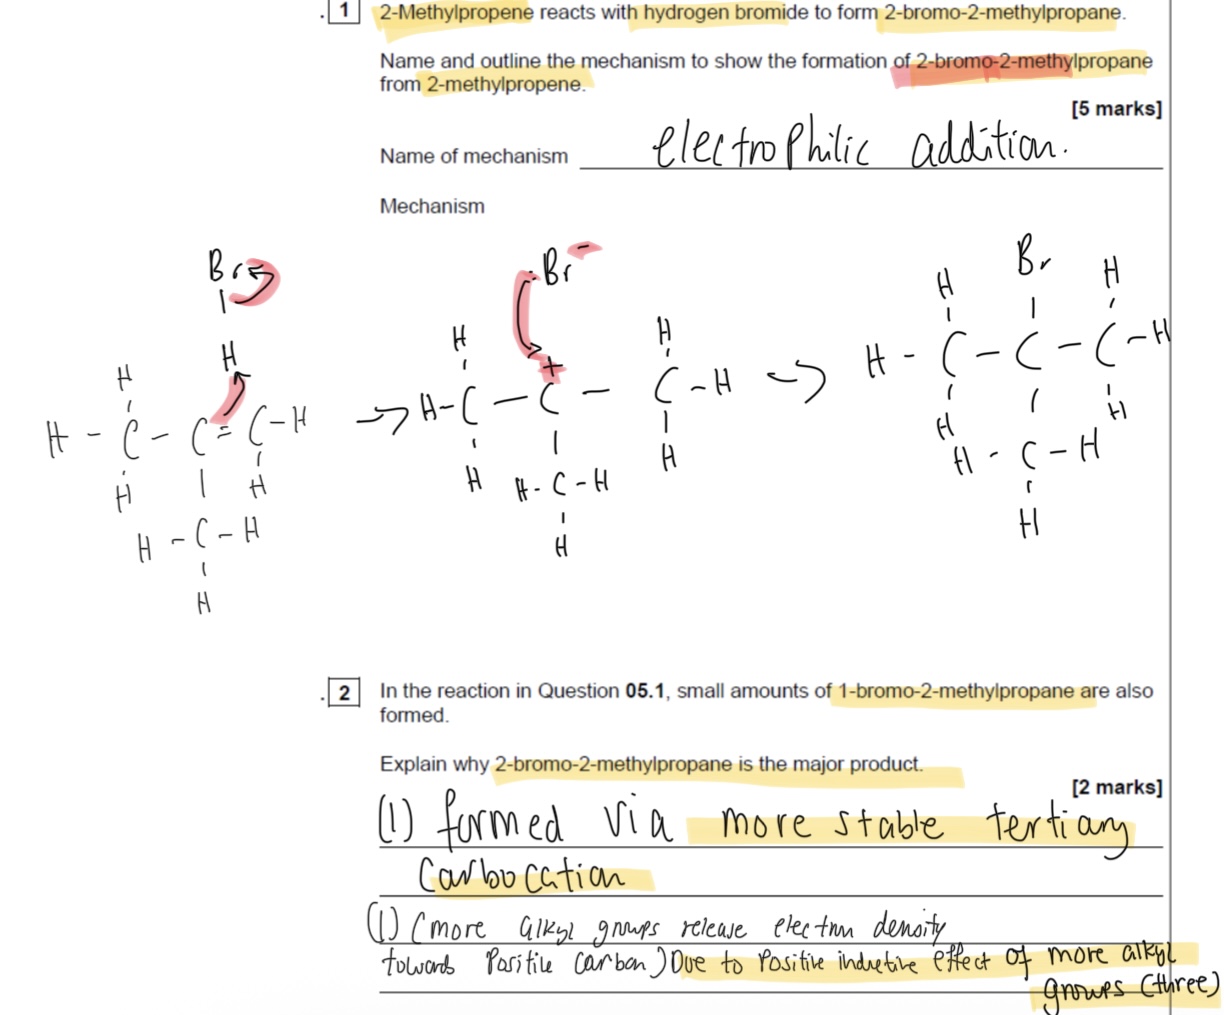 . 1 2-Methylpropene reacts with hydrogen bromide to form 2-bromo-2-methylpropane.
Name and outline the mechanism to show the formation of 2-bromo-2-methylpropane
from 2-methylpropene.
[5 marks]
Name of mechanism electrophilic addition.
Mechanism
Br
H
H
H - C - C = C - H
H H
H - C - H
H
:Br -
H H
H - C - C + - C - H
H H
H - C - H
H
Br
H H
H - C - C - C - H
H H
H - C - H
H
. 2 In the reaction in Question 05.1, small amounts of 1-bromo-2-methylpropane are also
formed.
Explain why 2-bromo-2-methylpropane is the major product.
[2 marks]
(1) formed via more stable tertiary
Carbocation
(1) (more alkyl groups release electron density
towards Positive carbon) Due to Positive inductive effect of more alkyl
groups (three)